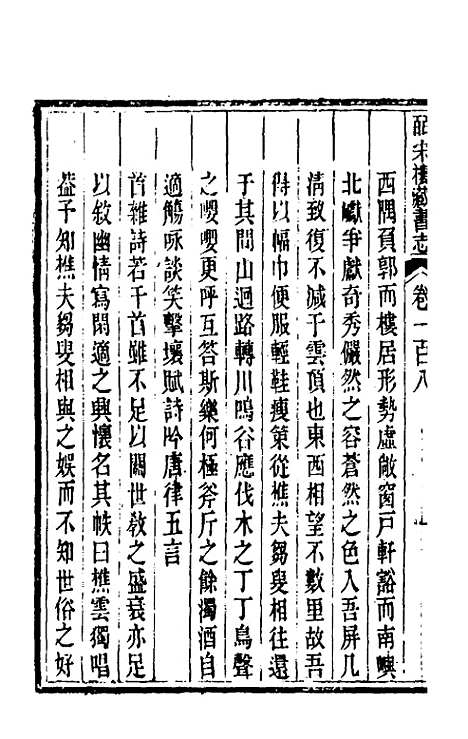 皕宋樓藏書志 卷一百八
西隅負郭而樓居形勢虛敞窗戸軒豁而南嶼
北巘爭獻奇秀儼然之容蒼然之色入吾屏几
淸致復不减于雲頂也東西相望不數里故吾
得以幅巾便服輕鞋瘦策從樵夫芻叟相往還
于其間山迴路轉川鳴谷應伐木之丁丁鳥聲
之嚶嚶更呼互答斯樂何極斧斤之餘濁酒自
適觴咏談笑擊壤賦詩吟唐律五言
首雜詩若千首雖不足以關世敎之盛衰亦足
以敘幽情寫閑適之興懷名其帙曰樵雲獨唱
葢予知樵夫芻叟相與之娛而不知世俗之好